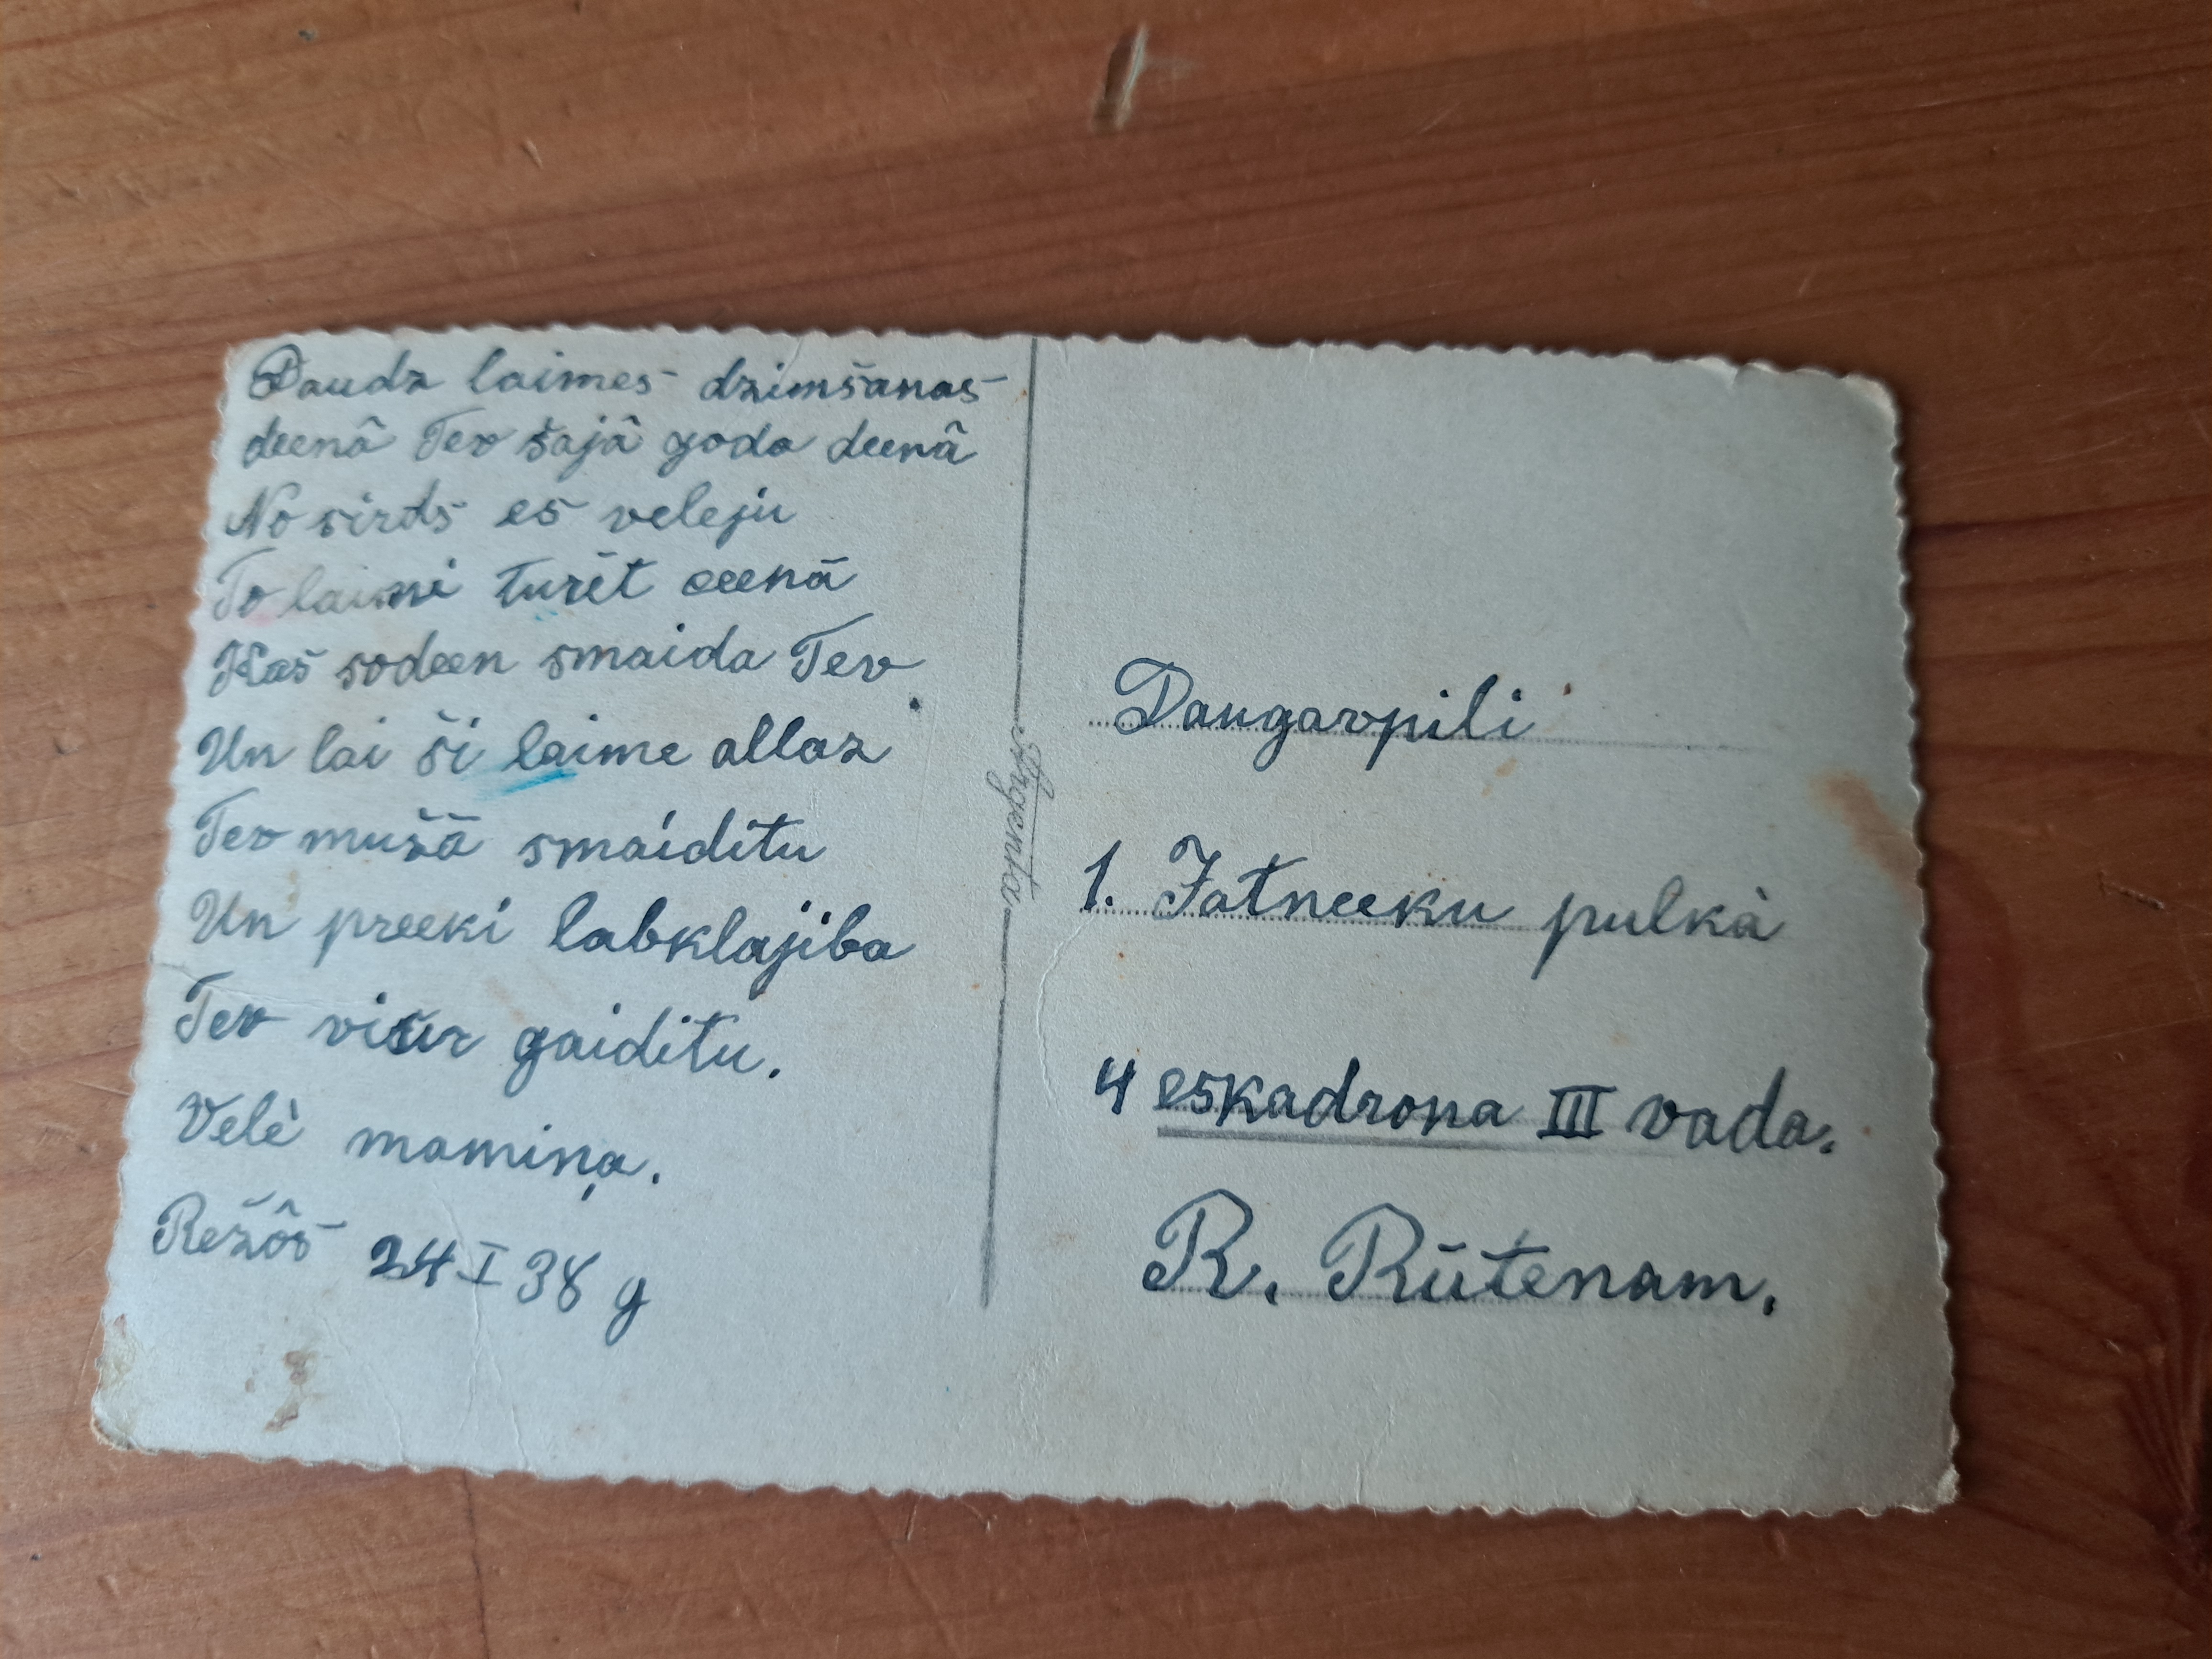 Daudz laimes dzimšanas
deenâ Tev šajâ goda deenâ
No sirds es veleju
To laimi turēt ceenā
Kas sodeen smaida Tev
Un lai ši laime allaz
Tev mužā smaiditu
Un preeki labklajiba
Tev visur gaiditu.
Velè mamiņa.
Režôs 24 I 38 g
Argenta
Daugavpili
1. Jatneeku pulkà
4 eskadrona III vada.
R. Rūtenam.